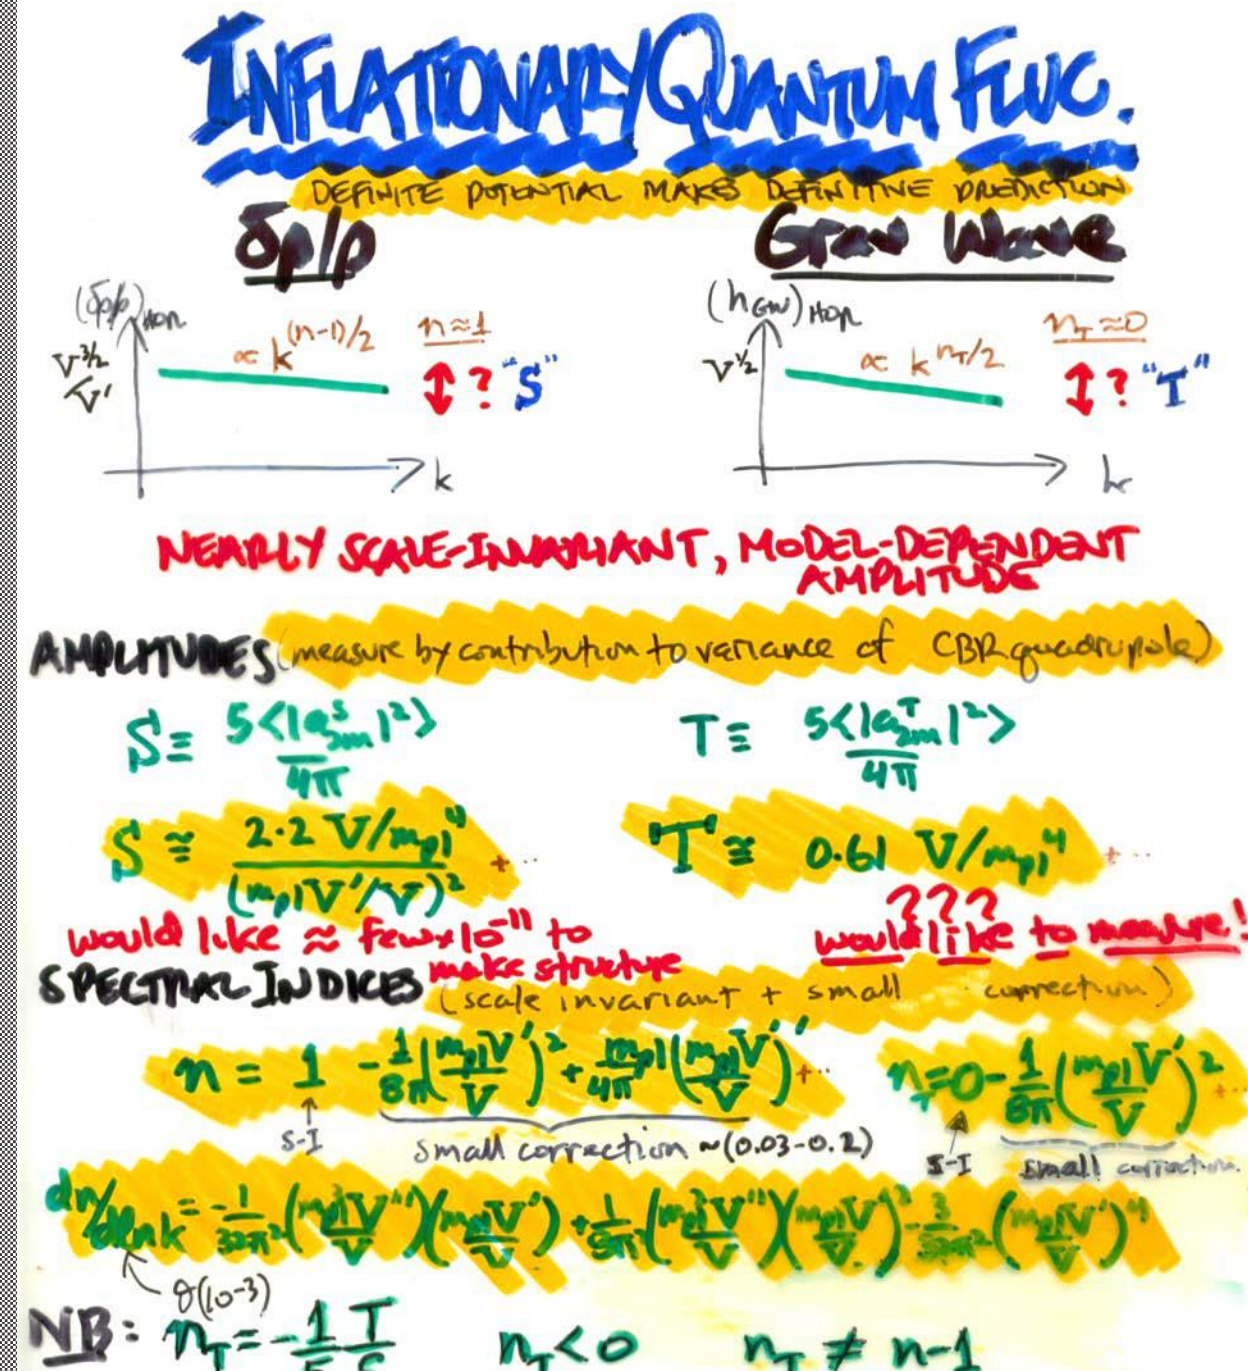 INFLATIONARY QUANTUM FLUC.
DEFINITE POTENTIAL MAKES DEFINITIVE PREDICTION
δρ/ρ
Grav Wave
(δρ/ρ)HOR
V^3/2
V'
∝ k^(n-1)/2
n≈1
↕? "S"
k
(hGW)HOR
V^1/2
∝ k^nT/2
nT≈0
↕? "T"
k
NEARLY SCALE-INVARIANT, MODEL-DEPENDENT
AMPLITUDE
AMPLITUDES (measure by contribution to variance of CBR quadrupole)
S ≡ 5<|a^S_2m|^2>/4π
T ≡ 5<|a^T_2m|^2>/4π
S ≅ 2.2 V/mpl^4 / (mplV'/V)^2 +..
T ≅ 0.61 V/mpl^4 +..
would like ≈ few×10^-11 to
make structure
???
would like to measure!
SPECTRAL INDICES (scale invariant + small correction)
n = 1 -1/8π(mplV'/V)^2 + mpl/4π(mplV'/V)' +..
S-I
small correction ~(0.03-0.2)
nT=0-1/8π(mplV'/V)^2 +..
S-I
small correction
dn/dlnk = -1/32π^2(mpl^3V'''/V)(mplV'/V) + 1/8π^2(mpl^2V''/V)(mplV'/V)^2 - 3/32π^2(mplV'/V)^4
O(10^-3)
NB: nT = -1/5 T/S
nT<0
nT ≠ n-1